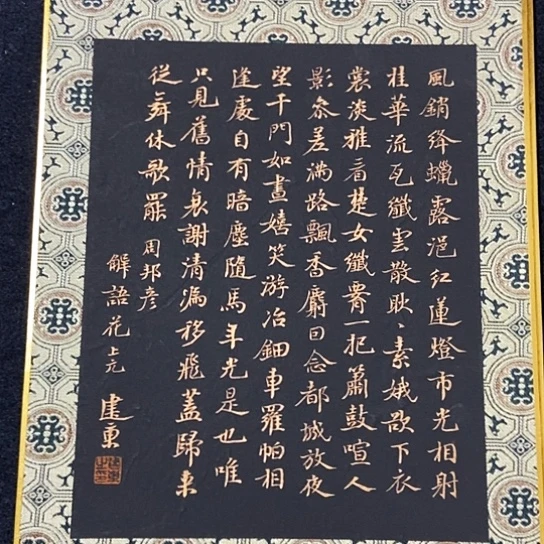 風銷絳蠟露浥紅蓮燈市光相射
桂華流瓦纖雲散耿、素娥欲下衣
裳淡雅看楚女纖腰一把簫鼓喧人
影叅差滿路飄香麝因念都城放夜
望千門如晝嬉笑游冶鈿車羅帕相
逢處自有暗塵隨馬年光是也唯
只見舊情衰謝清漏移飛蓋歸來
從舞休歌罷
周邦彦
解語花上元
建東